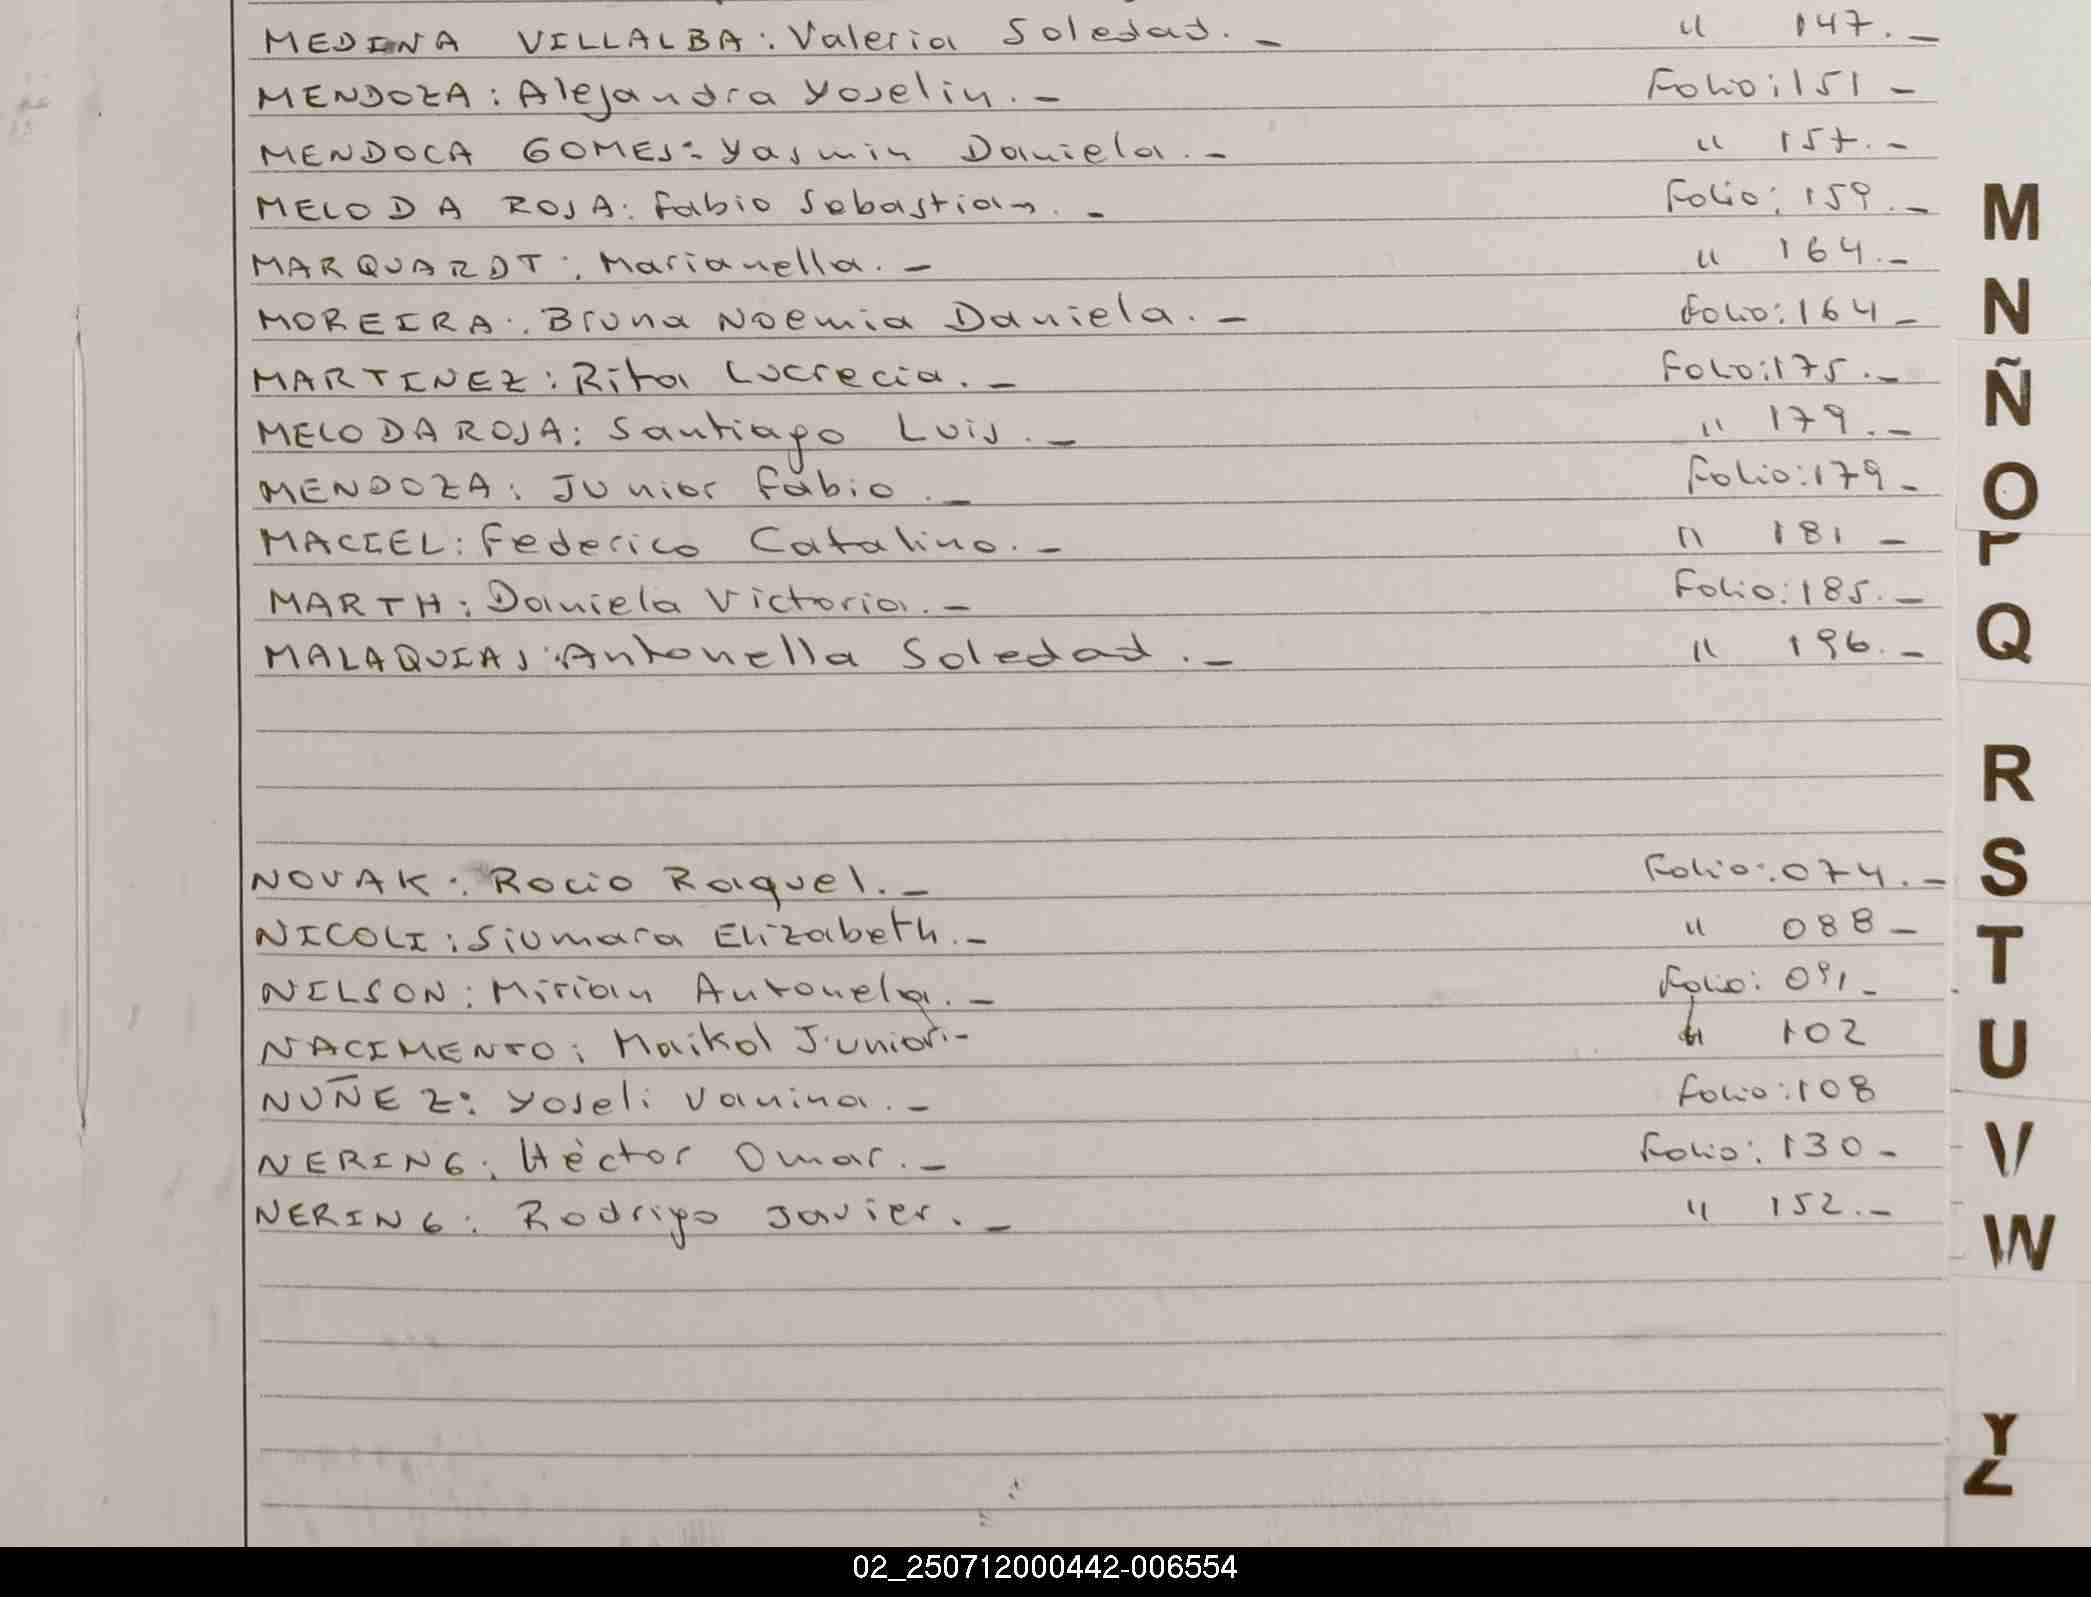 MEDINA VILLALBA: Valeria Soledad.- " 147.-
MENDOZA: Alejandra Yoselin.- Folio: 151 -
MENDOCA GOMES: Yasmin Daniela.- " 157.-
MELO DA ROSA: Fabio Sebastian.- Folio: 159.-
MARQUARDT: Marianella.- " 164.-
MOREIRA: Bruna Noemia Daniela.- Folio: 164 -
MARTINEZ: Rita Lucrecia.- Folio: 175.-
MELO DA ROSA: Santiago Luis.- " 179.-
MENDOZA: Junior Fabio.- Folio: 179 -
MACIEL: Federico Catalino.- " 181 -
MARTH: Daniela Victoria.- Folio: 185.-
MALAQUIAS: Antonella Soledad.- " 196.-
NOVAK: Rocio Raquel.- Folio: 074.-
NICOLI: Siumara Elizabeth.- " 088 -
NILSON: Mirian Antonela.- Folio: 091 -
NACIMENTO: Maikol Junior.- " 102
NUÑEZ: Yoseli Vanina.- Folio: 108
NERING: Hèctor Omar.- Folio: 130 -
NERING: Rodrigo Javier.- " 152.-
M
N
Ñ
O
P
Q
R
S
T
U
V
W
Y
Z
02_250712000442-006554